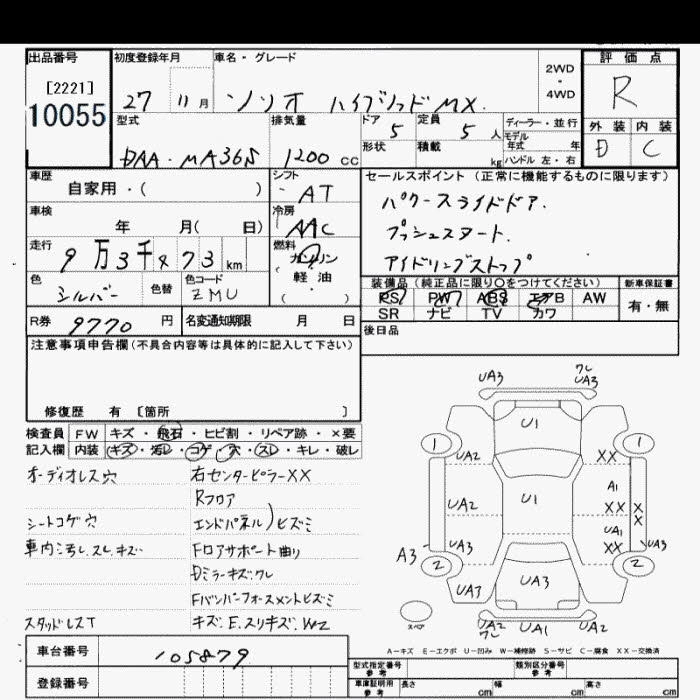 出品番号
[2221]
10055
初度登録年月
27 11月
車名・グレード
ソリオ ハイブリッド MX.
2WD
・
4WD
評価点
R
外装 内装
D C
型式
DAA・MA36S
排気量
1200 cc
ドア 5
定員 5 人
ディーラー・並行
モデル
年式 年
形状
積載 kg
ハンドル 左・右
車歴
自家用・( )
シフト
AT
車検
年 月( 日)
冷房
AAC
走行
9万3千473 km
燃料
ガソリン
・
軽・油
( )
色
シルバー
色替
色コード
ZMU
R券 9770 円
名変通知期限 月 日
セールスポイント (正常に機能するものに限ります)
パワースライドドア.
プッシュスタート.
アイドリングストップ
装備品 (純正品に限り〇をつけてください)
新車保証書
PS PW ABS エアB AW
有・無
SR ナビ TV カワ
後日品
注意事項申告欄(不具合内容等は具体的に記入して下さい)
修復歴 有 〔箇所 〕
検査員 FW キズ・飛石・ヒビ割・リペア跡・×要
記入欄 内装 キズ・汚レ・コゲ・穴・スレ・キレ・破レ
オーディオレス穴
シートコゲ穴
車内汚レ.スレ.キズ
スタッドレスT
右センターピラーXX
Rフロア
エンドパネル)ヒズミ
Fロアサポート曲り
Dミラーキズ.ワレ
Fバンパーフォースメントヒズミ
キズ.E.スリキズ.W2
UA3
ワレ
UA3
U1
1 1
UA2 XX
A1
UA2 U1 XX X
X
UA1
UA3 XX UA3
A3
2 2
UA3 UA3
スペア
UA2
ワレ
UA1 UA2
A-キズ E-エクボ U-凹み W-補修跡 S-サビ C-腐食 XX-交換済
車台番号 105879
登録番号
型式指定番号
参考
類別区分番号
参考
車庫証明用
参考
長さ cm
幅 cm
高さ cm